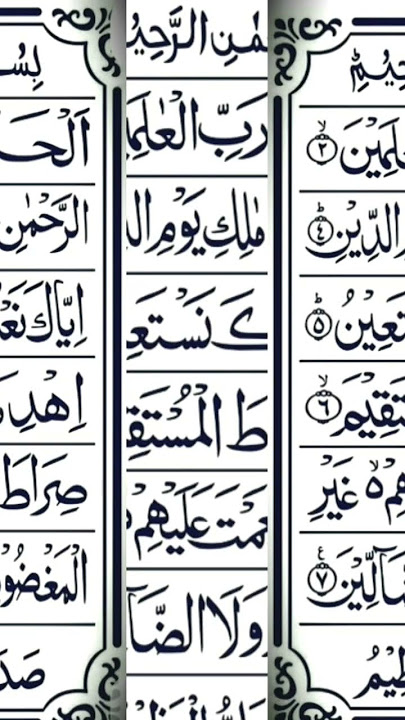 بِسْ
اَلْحَ
الرَّحْمٰنِ
اِيَّاكَ نَعْ
اِهْدِ
صِرَاطَ
الْمَغْضُو
صَدَ
مٰنِ الرَّحِيْ
رَبِّ الْعٰلَمِ
مٰلِكِ يَوْمِ الد
كَ نَسْتَعِ
طَ الْمُسْتَقِ
عَمْتَ عَلَيْهِمْ
وَلَا الضَّا
حِيْمِ
لَمِيْنَ ۲
الدِّيْنِ ۴
تَعِيْنُ ۵
تَقِيْمَ ۶
هِمْ ۵ غَيْرِ
ضَآلِّيْنَ ۷
ظِيْمُ